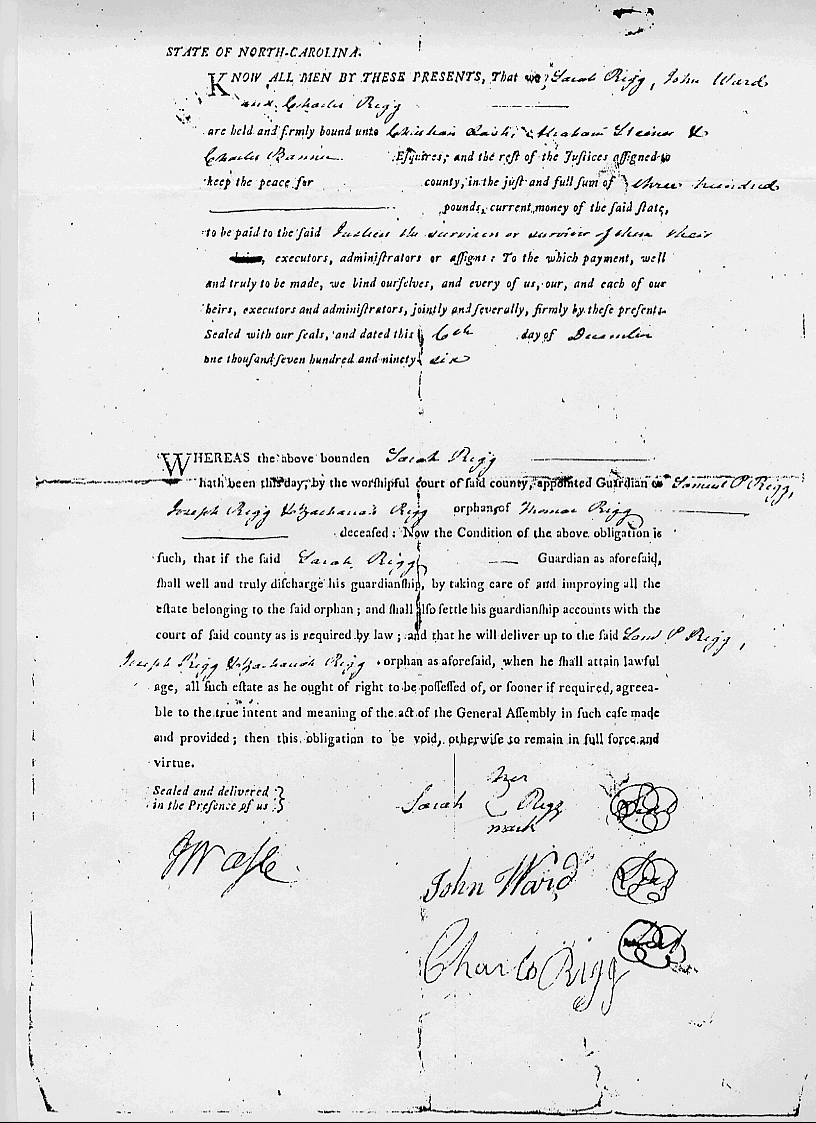 STATE OF NORTH-CAROLINA.
KNOW ALL MEN BY THESE PRESENTS, That we, Sarah Rigg, John Ward
and Charles Rigg
are held and firmly bound unto Christian Lash, Abraham Steiner &
Charles Banner Esquires; and the rest of the Justices assigned to
keep the peace for county, in the just and full sum of three hundred
pounds, current money of the said state,
to be paid to the said Justices the survivors or survivor of them their
executors, administrators or assigns: To the which payment, well
and truly to be made, we bind ourselves, and every of us, our, and each of our
heirs, executors and administrators, jointly and severally, firmly by these presents.
Sealed with our seals, and dated this 6th day of December
one thousand seven hundred and ninety six
WHEREAS the above bounden Sarah Rigg
hath been this day, by the worshipful court of said county, appointed Guardian Samuel P Rigg,
Joseph Rigg & Zachariah Rigg orphans of Thomas Rigg
deceased: Now the Condition of the above obligation is
such, that if the said Sarah Rigg Guardian as aforesaid,
shall well and truly discharge his guardianship, by taking care of and improving all the
estate belonging to the said orphan; and shall also settle his guardianship accounts with the
court of said county as is required by law; and that he will deliver up to the said Saml P Rigg,
Joseph Rigg & Zachariah Rigg orphan as aforesaid, when he shall attain lawful
age, all such estate as he ought of right to be possessed of, or sooner if required, agreea-
ble to the true intent and meaning of the act of the General Assembly in such case made
and provided; then this obligation to be void, otherwise to remain in full force and
virtue.
Sealed and delivered
in the Presence of us
her
Sarah Rigg Seal
mark
John Ward Seal
Charles Rigg Seal